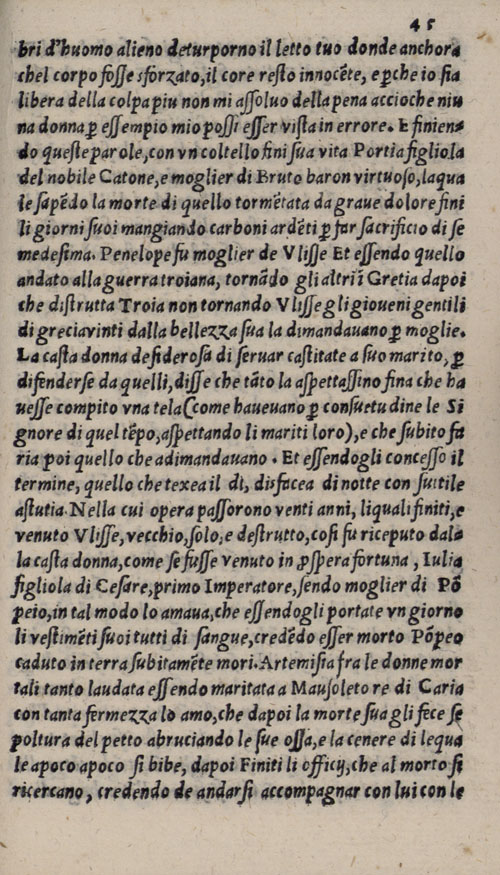 45
bri d'huomo alieno deturporno il letto tuo donde anchora
chel corpo fosse sforzato, il core resto innocẽte, e ꝑche io sia
libera della colpa piu non mi assoluo della pena accioche niu
na donna ꝑ essempio mio possi esser vista in errore. E finien⸗
do queste parole, con vn coltello fini sua vita Portia figliola
del nobile Catone, e moglier di Bruto baron virtuoso, laqua
le sapẽdo la morte di quello tormẽtata da graue dolore fini
li giorni suoi mangiando carboni ardẽti ꝑ far sacrificio di se
medesima. Penelope fu moglier de Vlisse Et essendo quello
andato alla guerra troiana, tornãdo gli altri ĩ Gretia dapoi
che distrutta Troia non tornando Vlisse gli gioueni gentili
di grecia vinti dalla bellezza sua la dimandauano ꝑ moglie.
La casta donna desiderosa di seruar castitate a suo marito, ꝑ
difenderse da quelli, disse che tãto la aspettassino fina che ha
uesse compito vna tela (come haueuano ꝑ consuetudine le Si
gnore di quel tẽpo, aspettando li mariti loro), e che subito fa
ria poi quello che adimandauano. Et essendogli concesso il
termine, quello che texea il di, disfacea di notte con suttile
astutia. Nella cui opera passorono venti anni, liquali finiti, e
venuto Vlisse, vecchio, solo, e destrutto, cosi fu riceputo dal⸗
la casta donna, come se fusse venuto in ꝓspera fortuna, Iulia
figliola di Cesare, primo Imperatore, sendo moglier di Põ
peio, in tal modo lo amaua, che essendogli portate vn giorno
li vestimẽti suoi tutti di sangue, credẽdo esser morto Põpeo
caduto in terra subitamẽte mori. Artemisia fra le donne mor
tali tanto laudata essendo maritata a Mausoleto re di Caria
con tanta fermezza lo amo, che dapoi la morte sua gli fece se
poltura del petto abruciando le sue ossa, e la cenere di lequa
le apoco apoco si bibe, dapoi Finiti li officij, che al morto si
ricercano, credendo de andarsi accompagnar con lui con le